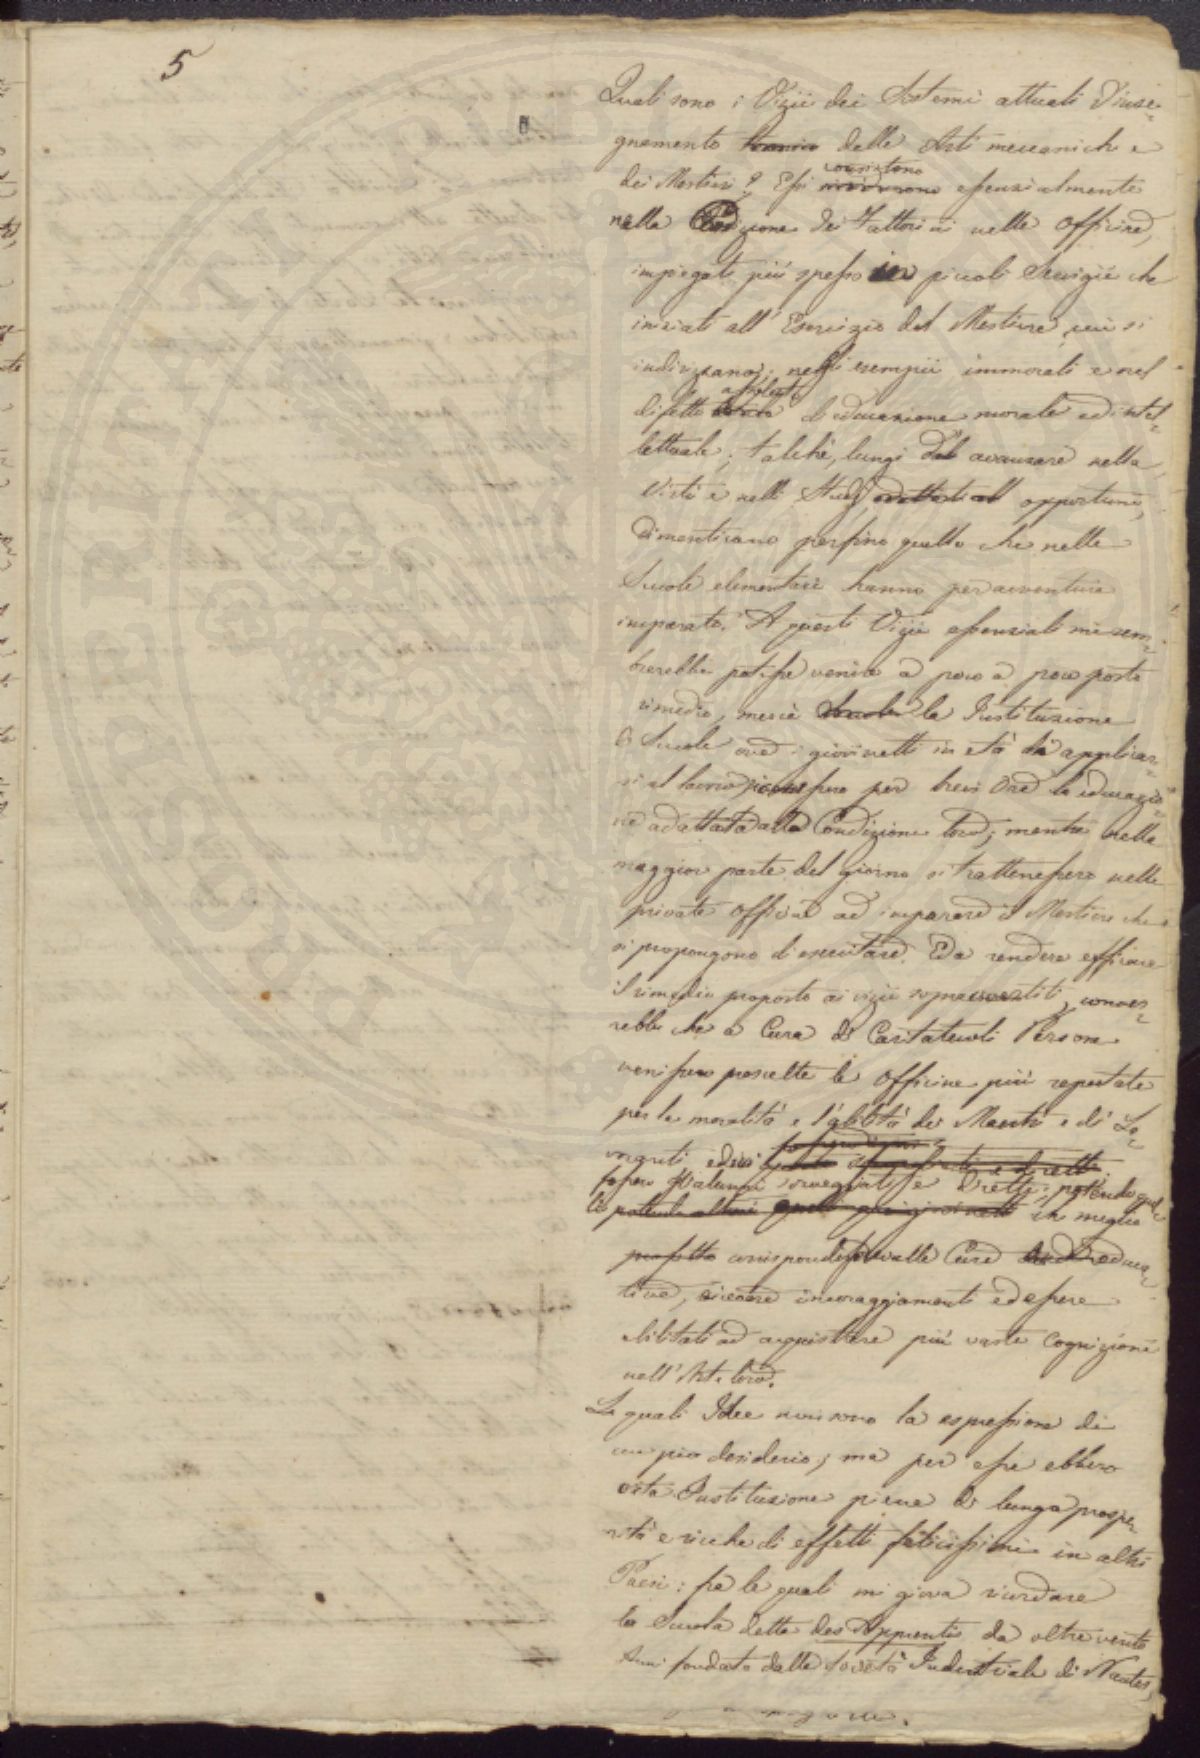 5
Quali sono i Vizii dei Sistemi attuali d'inse-
gnamento delle Arti meccaniche e
dei Mestieri? Essi consistono essenzialmente
nella dei Fattorini nelle officine,
impiegati più spesso in piccoli Servigii che
iniziati all'Esercizio del Mestiere, cui si
indirizzano; negli esempii immorali e nel
difetto assoluto di educazione morale ed intel-
lettuale; talchè, lungi dal avanzare nella
Virtù e nelli Studj opportuni,
dimenticano persino quello che nelle
Scuole elementari hanno per avventura
imparato. A questi Vizii essenziali mi sem-
brerebbe potesse venire a poco a poco posto
rimedio, mercè la Instituzione
di Scuole ove i giovinetti in età da applicar-
si al lavoro ricevessero per brevi Ore la educazio-
ne adattata alla Condizione loro; mentre nella
maggior parte del giorno si trattenessero nelle
private officine ad imparare il Mestiere che
si propongono di esercitare. E da rendere efficace
il rimedio proposto ai vizii sopraccitati, conver-
rebbe che a Cura di Caritatevoli Persone
venissero prescelte le officine più reputate
per la moralità e l'abilità dei Maestri e di La-
voranti ed ivi
fossero gli alunni sorvegliati e diretti; potendo quel-
li in meglio
corrispondessero alle Cure educa-
tive, ricevere incoraggiamenti ed essere
abilitati ad acquistare più vaste Cognizioni
nell'Arte loro.
Le quali Idee non sono la espressione di
un pio desiderio; ma per esse ebbero
vita Instituzione piene di lunga prospe-
rità e ricche di effetti felicissimi in altri
Paesi: fra le quali mi giova ricordare
la Scuola detta des Apprentis da oltre venti
Anni fondata dalla Società Industriale di Nantes,